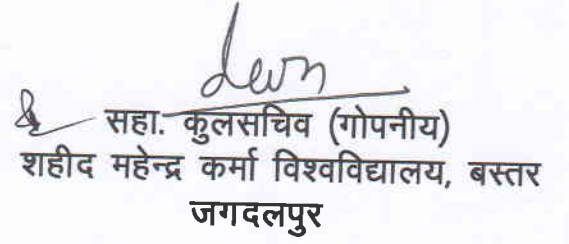 सहा. कुलसचिव (गोपनीय)
शहीद महेन्द्र कर्मा विश्वविद्यालय, बस्तर
जगदलपुर